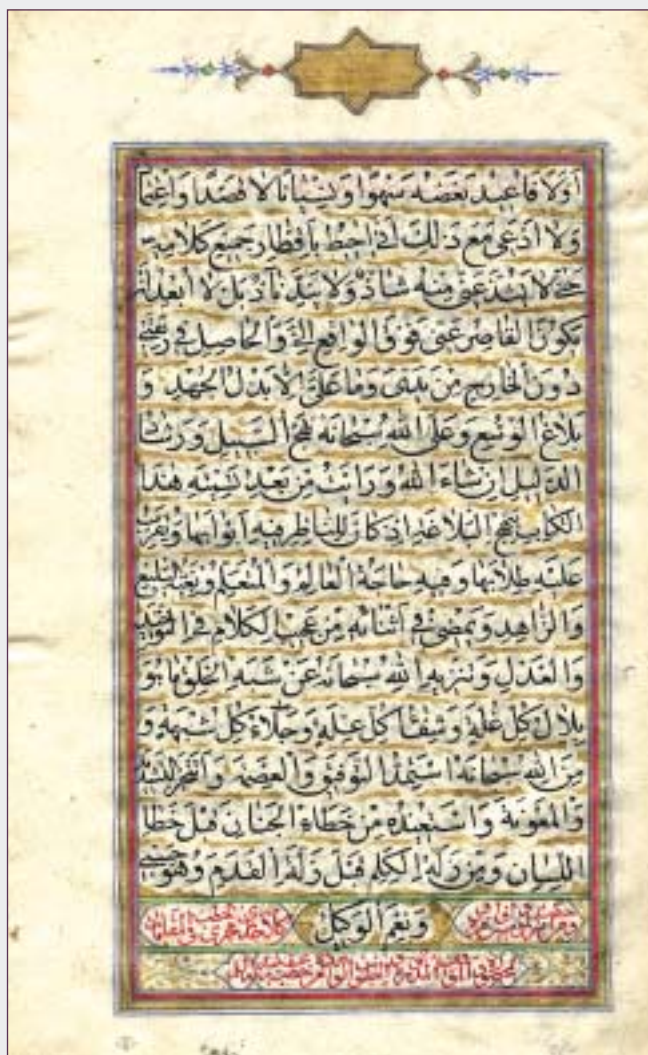 أَوَّلًا فَأُعِيدَ بَعْضُهُ سَهْوًا وَنِسْيَانًا لَا قَصْدًا وَاعْتِمَا
وَلَا أَدَّعِي مَعَ ذَلِكَ أَنِّي أُحِيطُ بِأَقْطَارِ جَمِيعِ كَلَامِهِ
حَتَّى لَا يَشُذَّ عَنِّي مِنْهُ شَاذٌّ وَلَا يَنِدَّ نَادٌّ بَلْ لَا أُبْعِدُ أَنْ
يَكُونَ الْقَاصِرُ عَنِّي فَوْقَ الْوَاقِعِ إِلَيَّ وَالْحَاصِلُ فِي رِبْقَتِي
دُونَ الْخَارِجِ مِنْ يَدَيَّ وَمَا عَلَيَّ إِلَّا بَذْلُ الْجُهْدِ وَ
بَلَاغُ الْوُسْعِ وَعَلَى اللَّهِ سُبْحَانَهُ نَهْجُ السَّبِيلِ وَرَشَادُ
الدَّلِيلِ إِنْ شَاءَ اللَّهُ وَرَأَيْتُ مِنْ بَعْدُ تَسْمِيَةَ هَذَا
الْكِتَابِ بِنَهْجِ الْبَلَاغَةِ إِذْ كَانَ لِلنَّاظِرِ فِيهِ أَبْوَابَهَا وَيُقَرِّبُ
عَلَيْهِ طِلَابَهَا وَفِيهِ حَاجَةُ الْعَالِمِ وَالْمُتَعَلِّمِ وَبُغْيَةُ الْبَلِيغِ
وَالزَّاهِدِ وَيَمْضِي فِي أَثْنَائِهِ مِنْ عَجِيبِ الْكَلَامِ فِي التَّوْحِيدِ
وَالْعَدْلِ وَتَنْزِيهِ اللَّهِ سُبْحَانَهُ عَنْ شَبَهِ الْخَلْقِ مَا هُوَ
بِلَالُ كُلِّ غُلَّةٍ وَشِفَاءُ كُلِّ عِلَّةٍ وَجَلَاءُ كُلِّ شُبْهَةٍ وَ
مِنَ اللَّهِ سُبْحَانَهُ أَسْتَمِدُّ التَّوْفِيقَ وَالْعِصْمَةَ وَأَتَنَجَّزُ التَّسْدِيدَ
وَالْمَعُونَةَ وَأَسْتَعِيذُهُ مِنْ خَطَاءِ الْجَنَانِ قَبْلَ خَطَاءِ
اللِّسَانِ وَمِنْ زَلَّةِ الْكَلِمِ قَبْلَ زَلَّةِ الْقَدَمِ وَهُوَ حَسْبِي
وَنِعْمَ الْوَكِيلُ